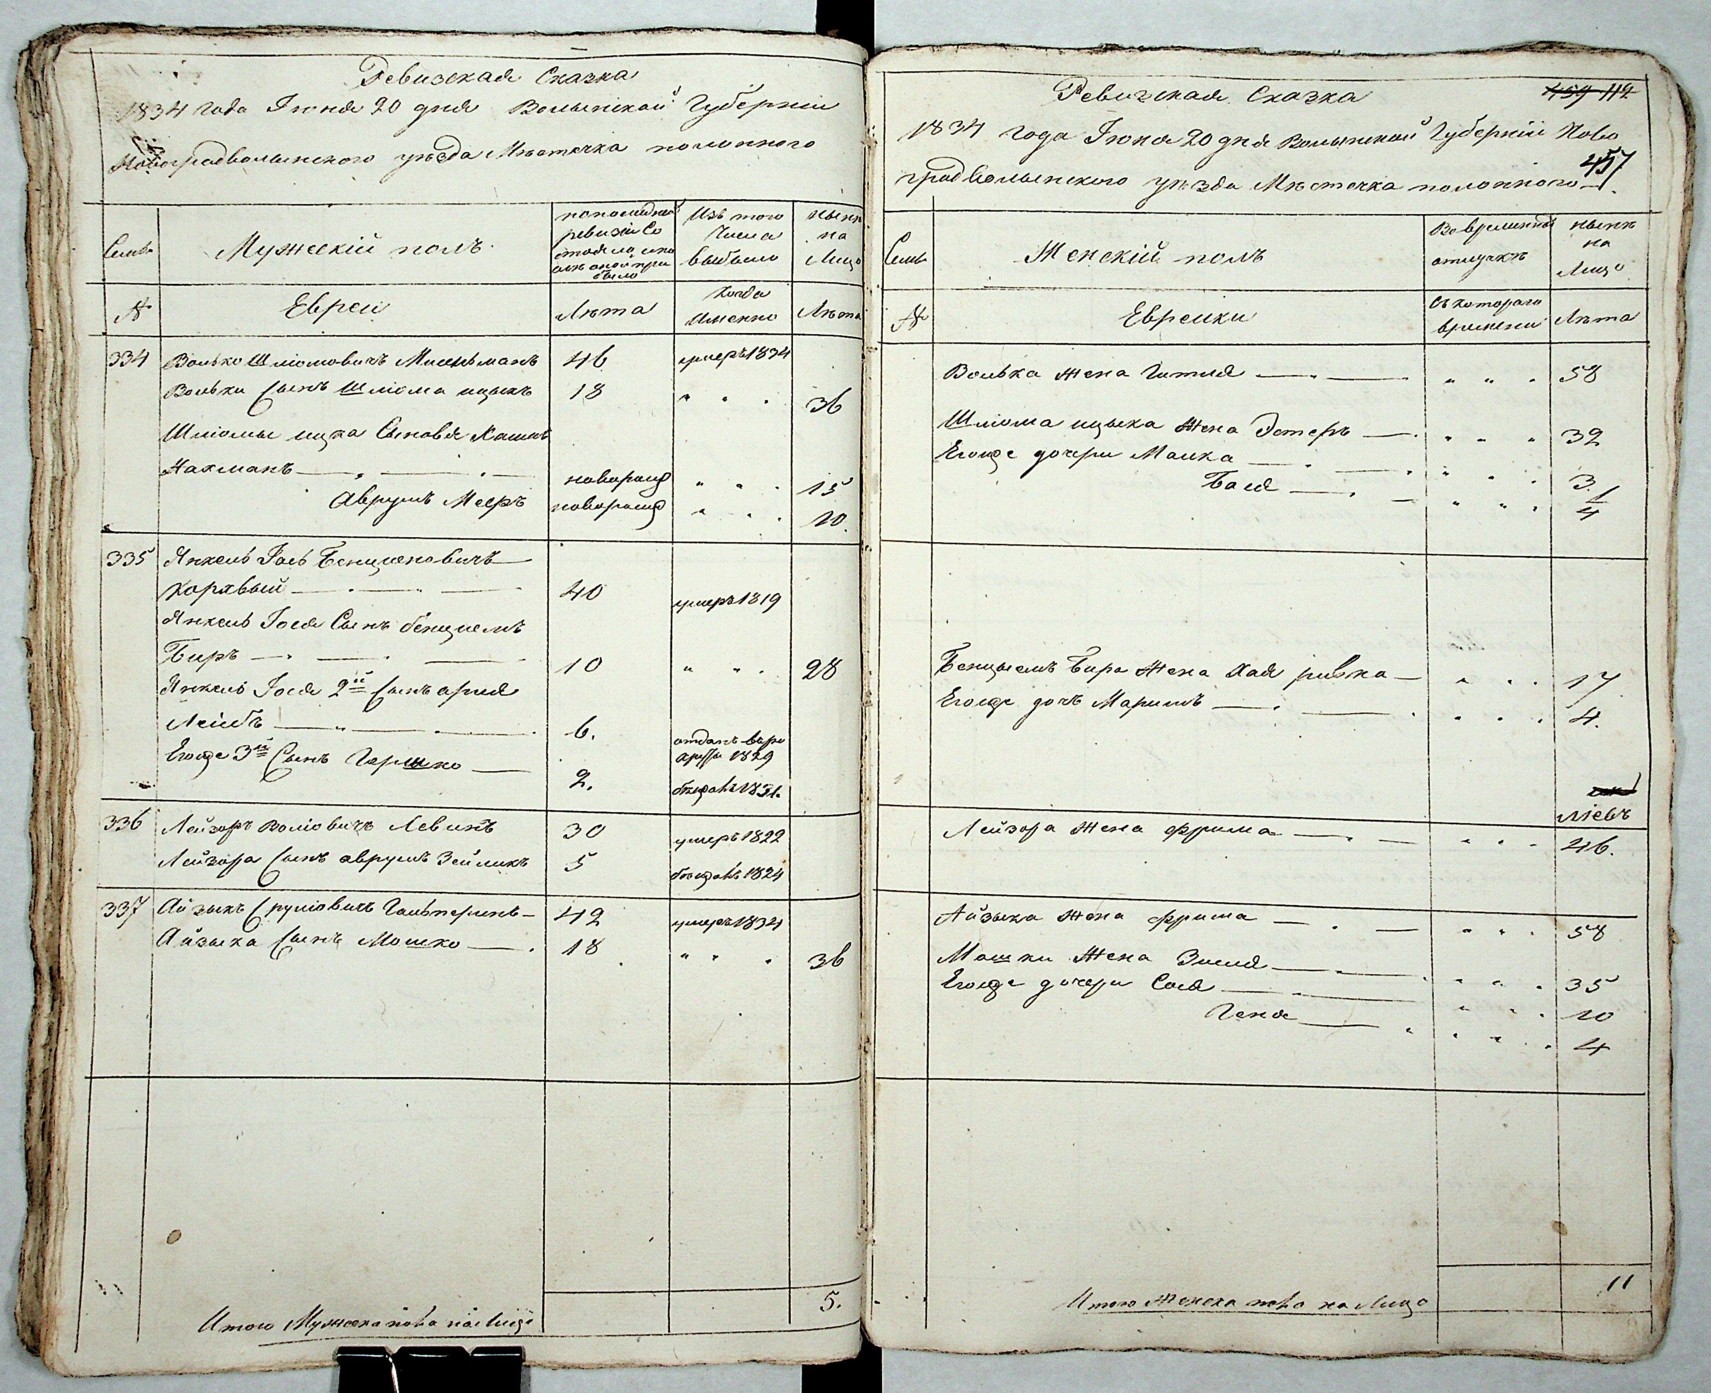 Ревизская Сказка
1834 года Іюня 20 дня Волынской Губерніи
Новоградволынского уѣзда Мѣстечка полонного
Семьи
Мужескій полъ
по последней ревизіи Состояло и после оной прибыло
Изъ того числа выбыло
ныне на Лицо
№
Евреи
Лѣта
Когда Именно
Лѣта
334 Волько Шліомовичъ 46 умеръ 1834
Вольки Сынъ Шліома ицыкъ 18 " " . 36
Шліомы ицка Сыновя
Нахманъ новорожд " " . 15
Аврумъ Мееръ новорожд " . . 10
335 Янкель Іось Бенцыеновичъ
40 умеръ 1819
Янкель Іося Сынъ бенцыемъ
Биръ 10 " " . 28
Янкель Іося 2й Сынъ ария
Лейбъ 6. отданъ в
1829
Егоже 3й Сынъ Гершко 2. бѣжалъ 1831.
336 Лейзоръ Волковичъ Левинъ 30 умеръ 1822
Лейзора Сынъ аврумъ Зейликъ 5 бѣжалъ 1824
337 Айзыкъ Сруліовичъ Гальперинъ 42 умеръ 1834
Айзыка Сынъ Мошко 18 " " . 36
Итого Мужеска пола на лицо 5.
Ревизская Сказка
459 112
1834 года Іюня 20 дня Волынской Губерніи Ново
градволынского уѣзда Мѣстечка полонного
457
Семьи
Женскій полъ
Во временной отлучкѣ
ныне на Лицо
№
Еврейки
Съ которого времени
Лѣта
Волька жена Гитля " " . 58
Шліома ицыка жена Эстеръ " " " 32
Егоже дочери Малка " . . 3
Бася " " . 1/4
Бенцыемъ Бира жена Хая ривка " . . 17
Егоже дочь Маримъ " . . 4.
Лейзора жена фрима " . . 46.
Айзыка жена фрима " " . 58
Мошки жена Зисля " " . 35
Егоже дочери Сося " " . 10
Гена " " . 4
Итого женска пола на Лицо 11